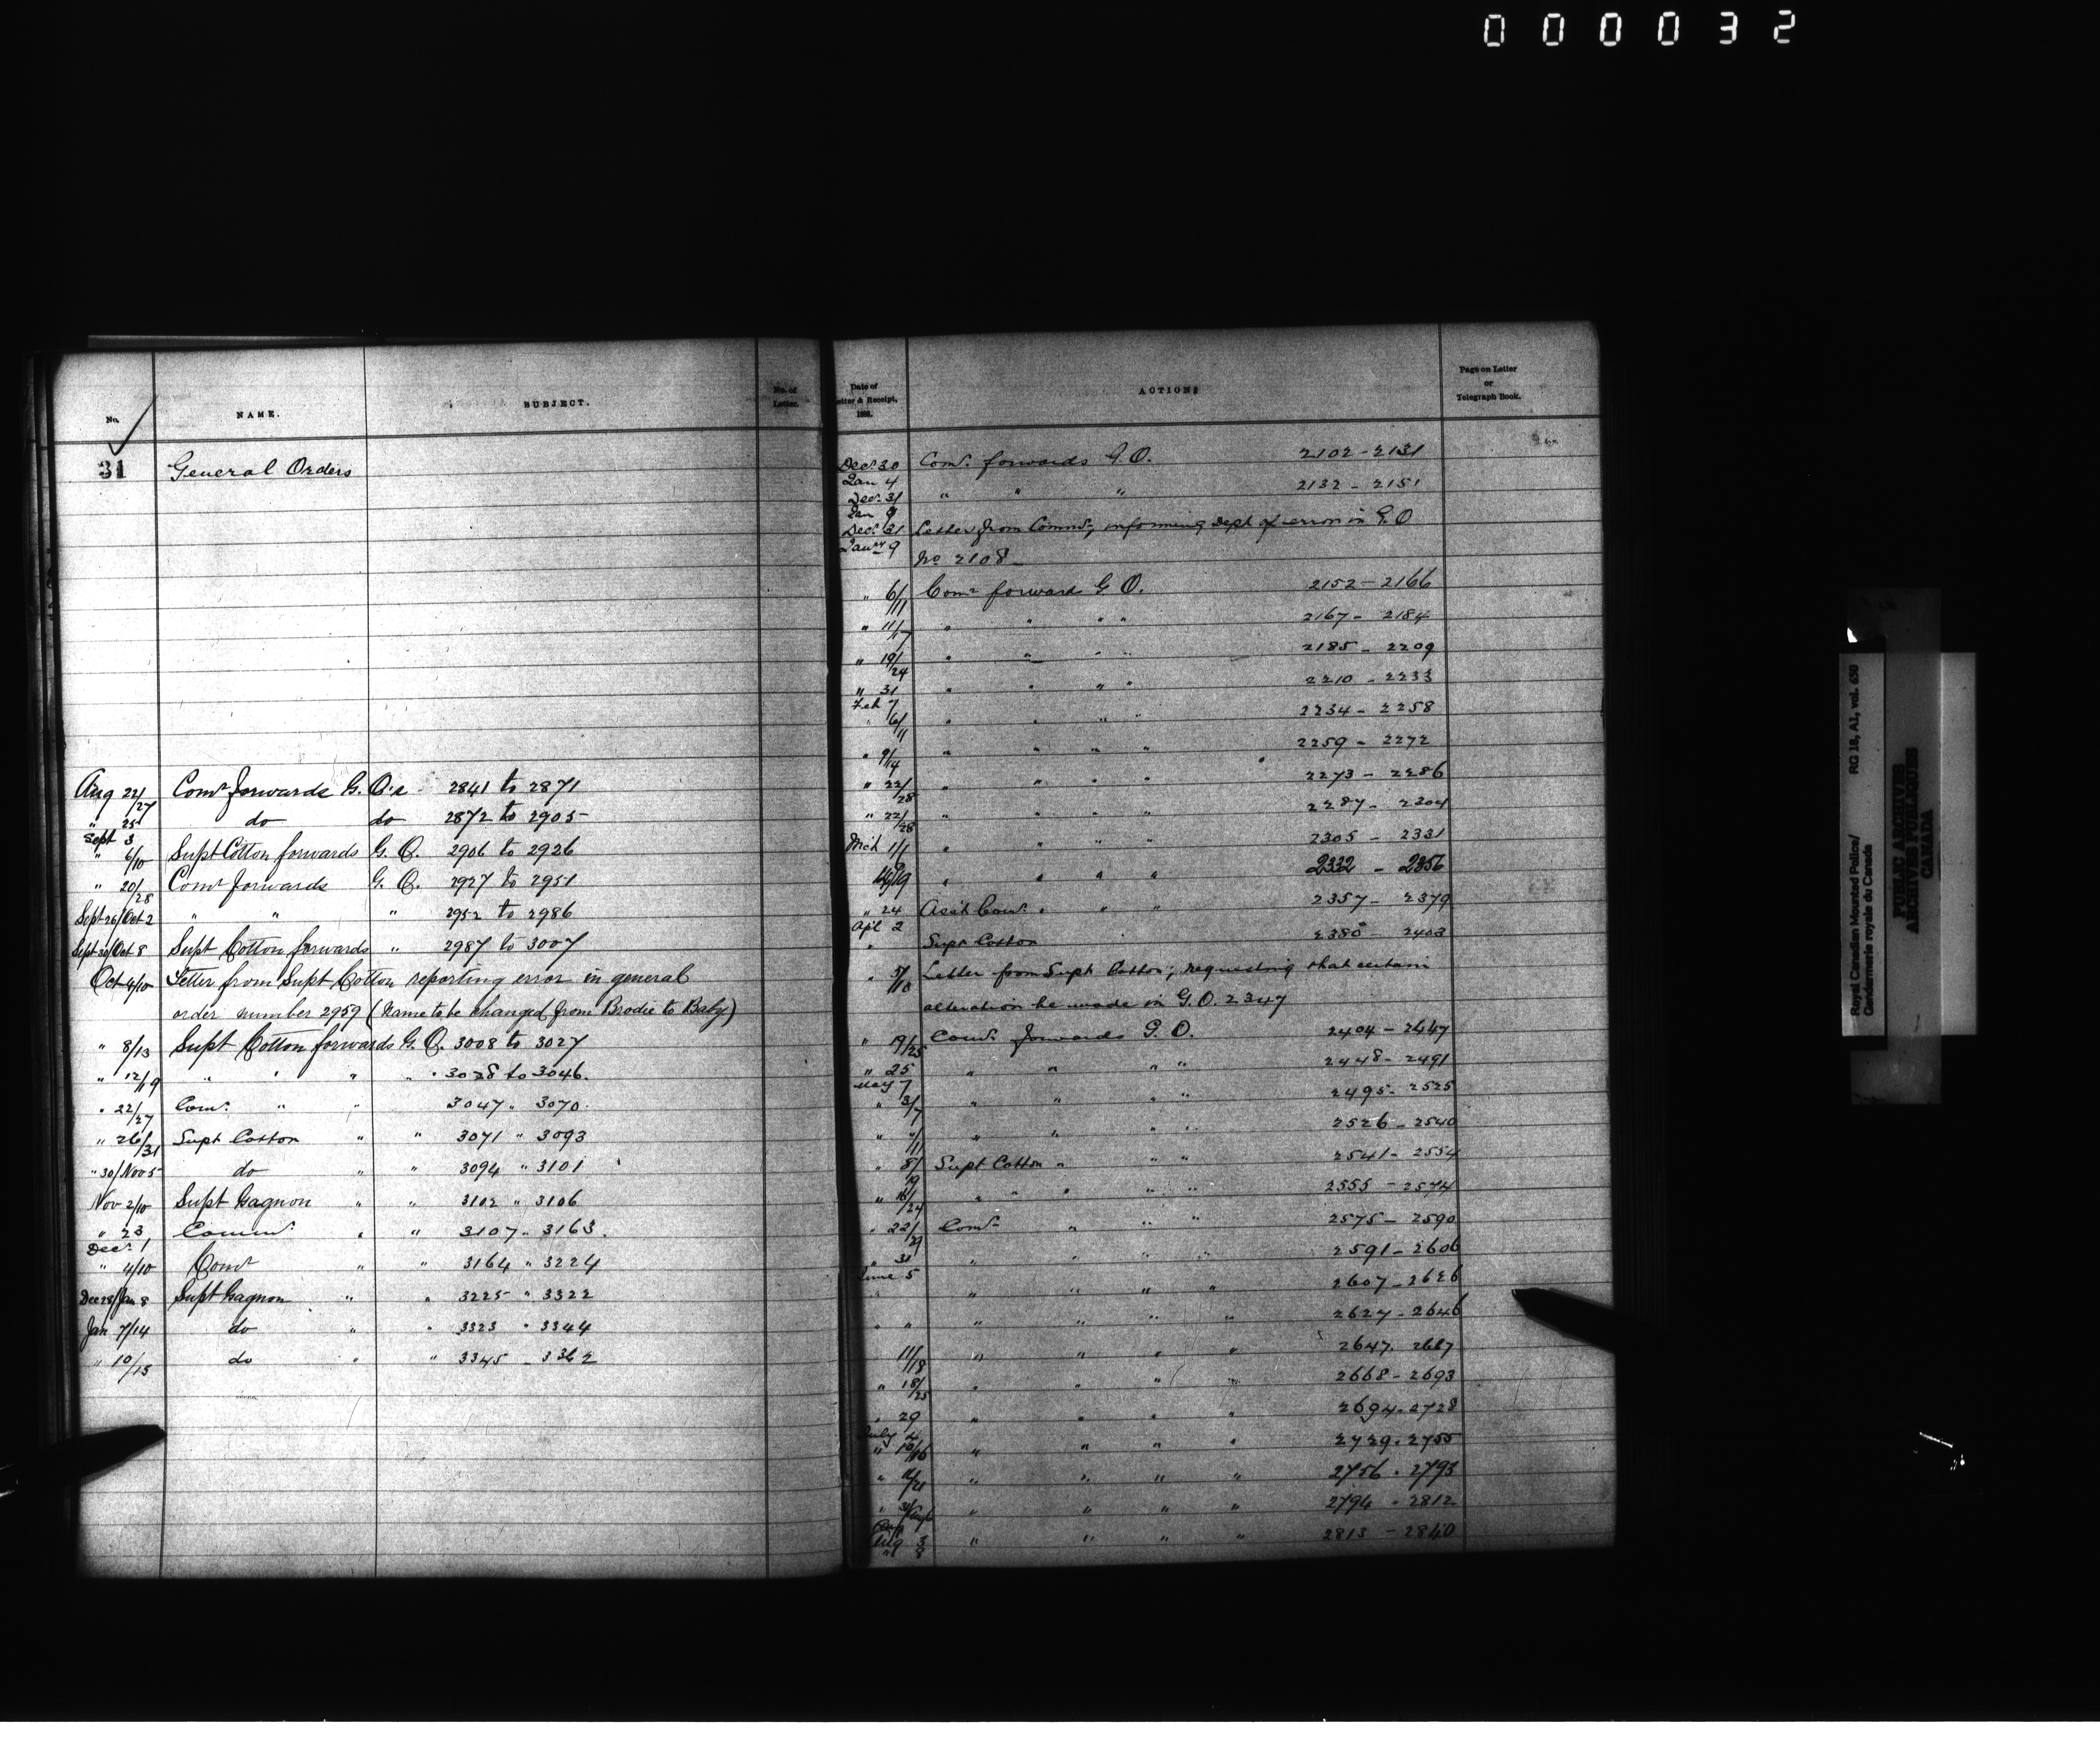 000032
No. NAME. SUBJECT. No. of Letter.
31 General Orders
Aug 22/27 Comr forwards G. O's 2841 to 2871
" 25 do do 2872 to 2905
Sept 3
" 6/10 Supt Cotton forwards G. O. 2906 to 2926
" 20/28 Comr forwards G. O. 2927 to 2951
Sept 26/Oct 2 " " " 2952 to 2986
Sept 30/Oct 8 Supt Cotton forwards " 2987 to 3007
Oct 4/10 Letter from Supt Cotton reporting error in general
order number 2959 (Name to be changed from Brodie to Baby)
" 8/13 Supt Cotton forwards G. O. 3008 to 3027
" 12/19 " " " " 3028 to 3046.
" 22/27 Comr. " " 3047 " 3070.
" 26/31 Supt Cotton " " 3071 " 3093
" 30/Nov 5 do " " 3094 " 3101
Nov 2/10 Supt Gagnon " " 3102 " 3106
" 23 Commr. " " 3107 " 3163.
Decr. 1
" 4/10 Comr " " 3164 " 3224
Dec 28/Jan 8 Supt Gagnon " " 3225 " 3322
Jan 7/14 do " " 3323 " 3344
" 10/15 do " " 3345 - 3362
Date of Letter & Receipt, 188. ACTIONS Page on Letter or Telegraph Book.
Decr 30 Comr. forwards G.O. 2102 - 2131
Jan 4
Decr. 31 " " " 2132 - 2151
Jan 9
Decr. 31 Letter from Commr, informing Dept of error in G.O
Janry 9 No 2108 -
" 6/11 Comr forward G O. 2152 - 2166
" 11/17 " " " " 2167 - 2184
" 19/24 " " " " 2185 - 2209
" 31 " " " " 2210 - 2233
Feb 7
" 6/11 " " " " 2234 - 2258
" 9/14 " " " " 2259 - 2272
" 22/28 " " " " 2273 - 2286
" 22/28 " " " " 2287 - 2304
Mch 1/ " " " " 2305 - 2331
/19 " " " " 2332 - 2356
" 24 Asst Comr. " " " 2357 - 2379
Apl 2
" Supt Cotton 2380 - 2403
" 5/10 Letter from Supt Cotton; requesting that certain
alteration be made in G.O. 2347
" 19/25 Comr. forwards G. O. 2404 - 2447
" 25 " " " " 2448 - 2491
May 7
" 3/7 " " " " 2495 - 2525
" /11 " " " " 2526 - 2540
" 8/ Supt Cotton " " " 2541 - 2554
" 18/24 " " " " " 2555 - 2574
" 22/29 Comr " " " 2575 - 2590
" 31 " " " " 2591 - 2606
June 5
" " " " " 2607 - 2626
" " " " " " 2627 - 2646
11/18 " " " " 2647 - 2667
" 18/25 " " " " 2668 - 2693
" 29 " " " " 2694 - 2728
July 4
" 10/16 " " " " 2729 - 2755
" /21 " " " " 2756 - 2793
" 31/Aug 6 " " " " 2794 - 2812
Aug 3 " " " " 2813 - 2840
" 8
Royal Canadian Mounted Police/ RG 18, A1, vol. 650
Gendarmerie royale du Canada
PUBLIC ARCHIVES
ARCHIVES PUBLIQUES
CANADA